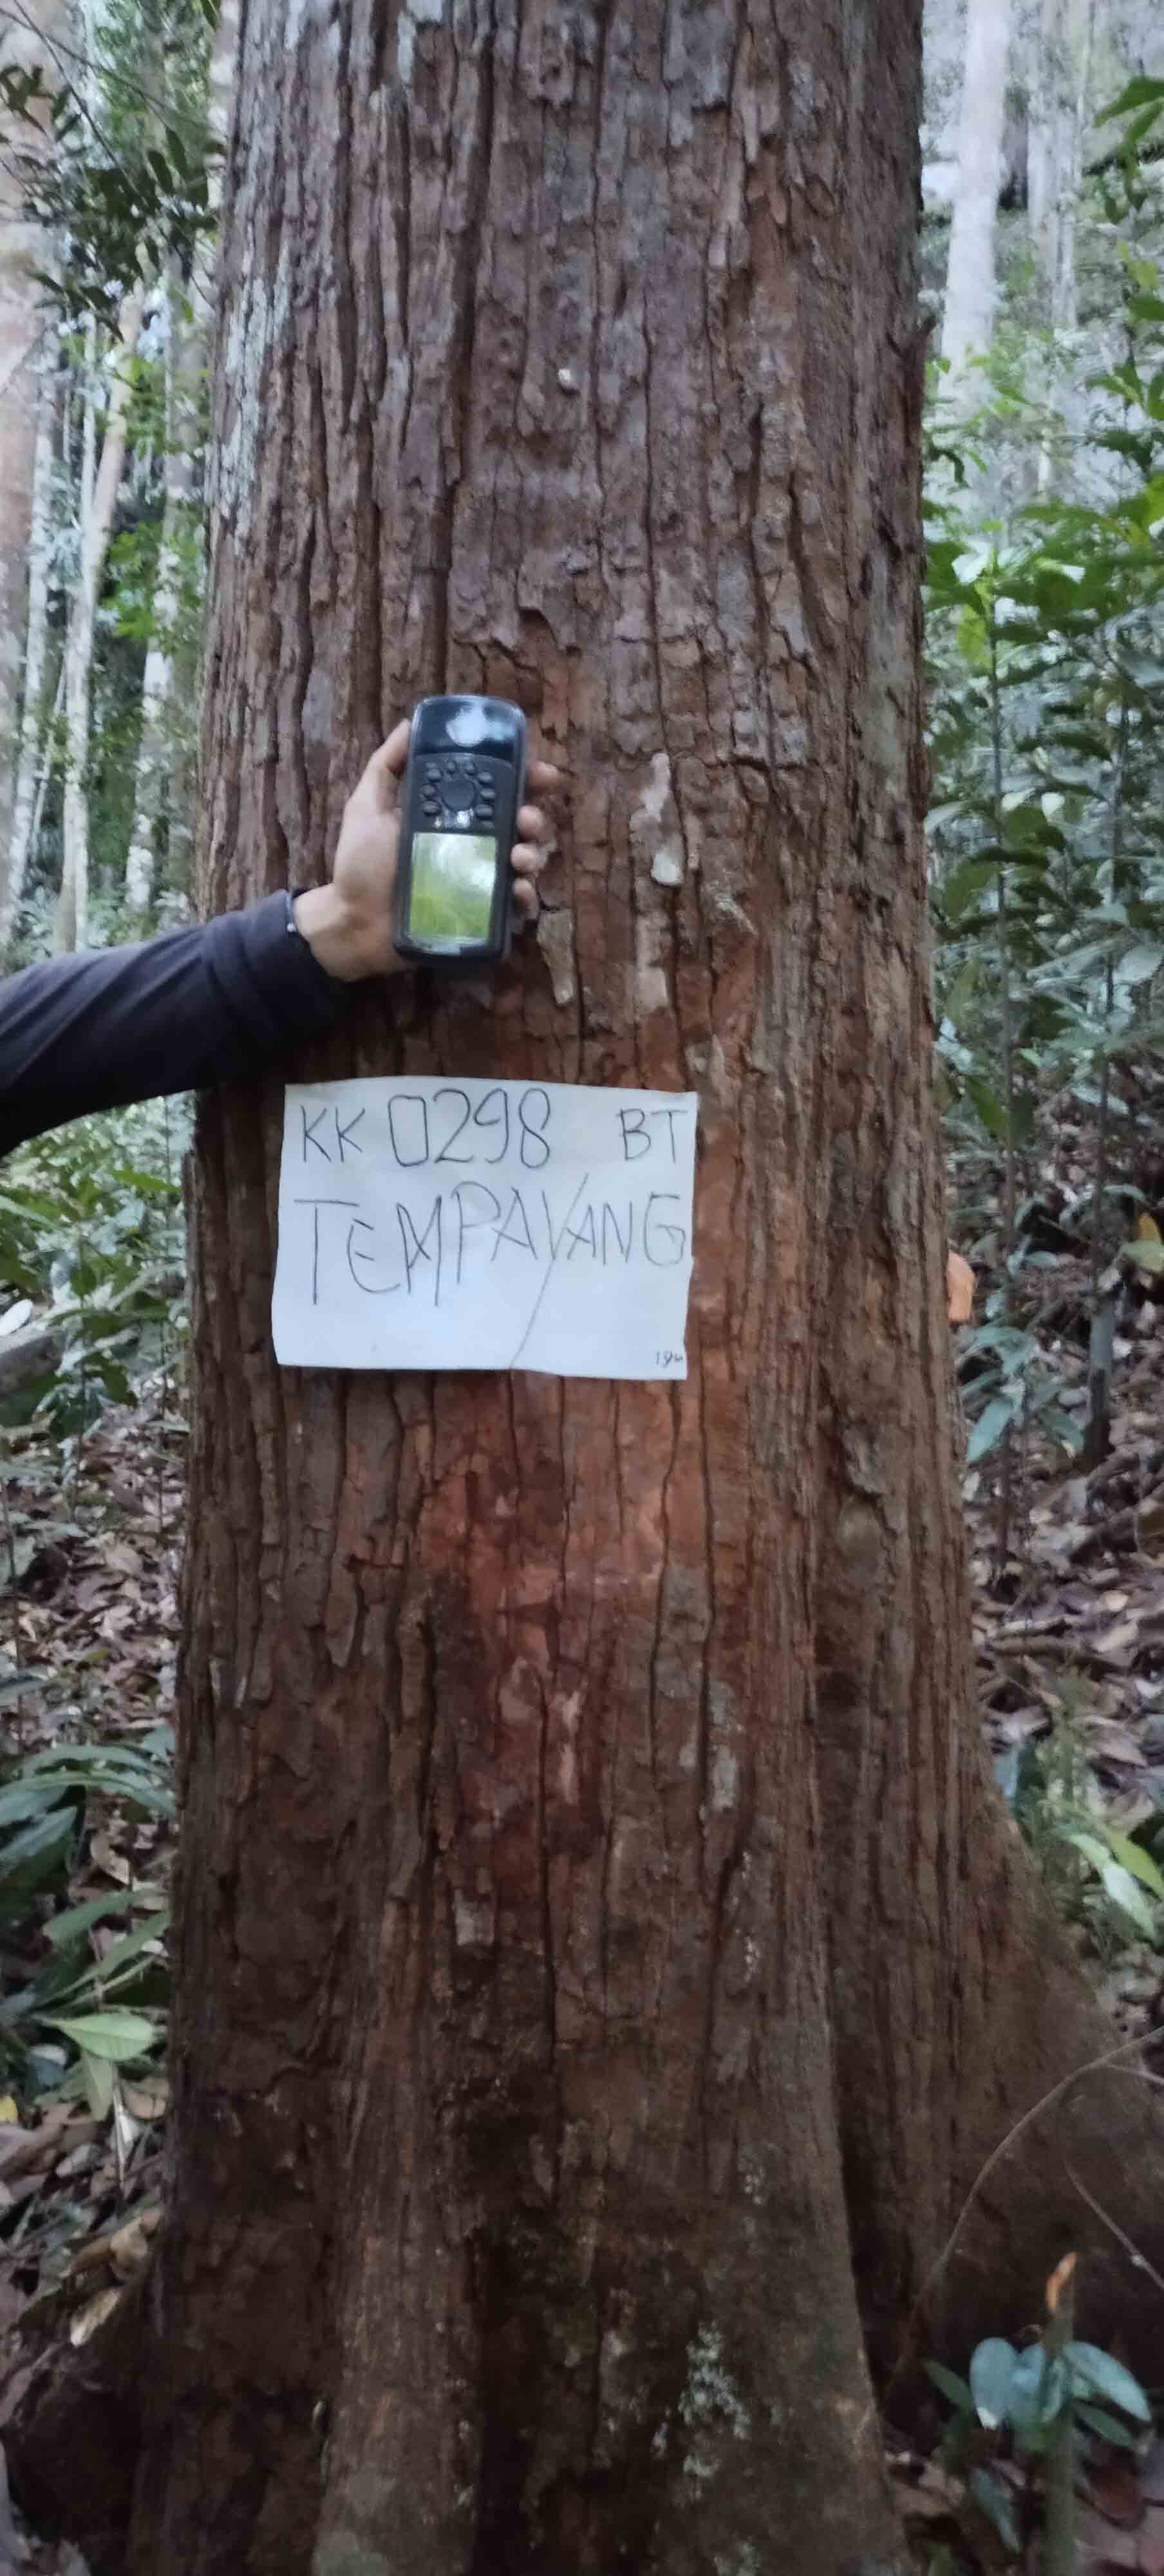 KK 0298 BT
TEMPAYANG